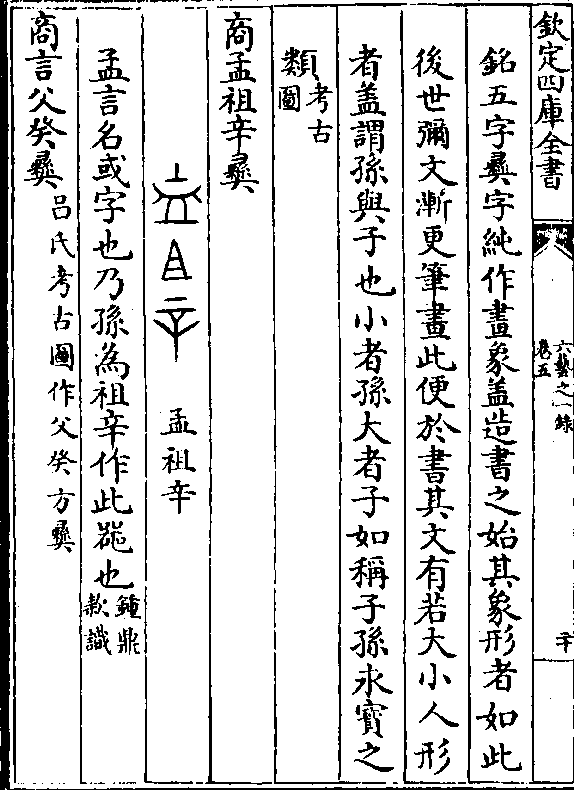 欽定四庫全書
六藝之一錄
卷五
二十
銘五字彝字純作畫象盖造書之始其象形者如此
後世彌文漸更筆畫此便於書其文有若大小人形
者盖謂孫與子也小者孫大者子如稱子孫永寳之
類考古圖
商孟祖辛彝
孟祖辛
孟言名或字也乃孫為祖辛作此噐也鐘鼎款識
商言父癸彝吕氏考古圖作父癸方彝